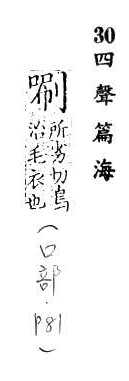 30四聲篇海
唰
所劣切鳥
治毛衣也
(口部.P81)